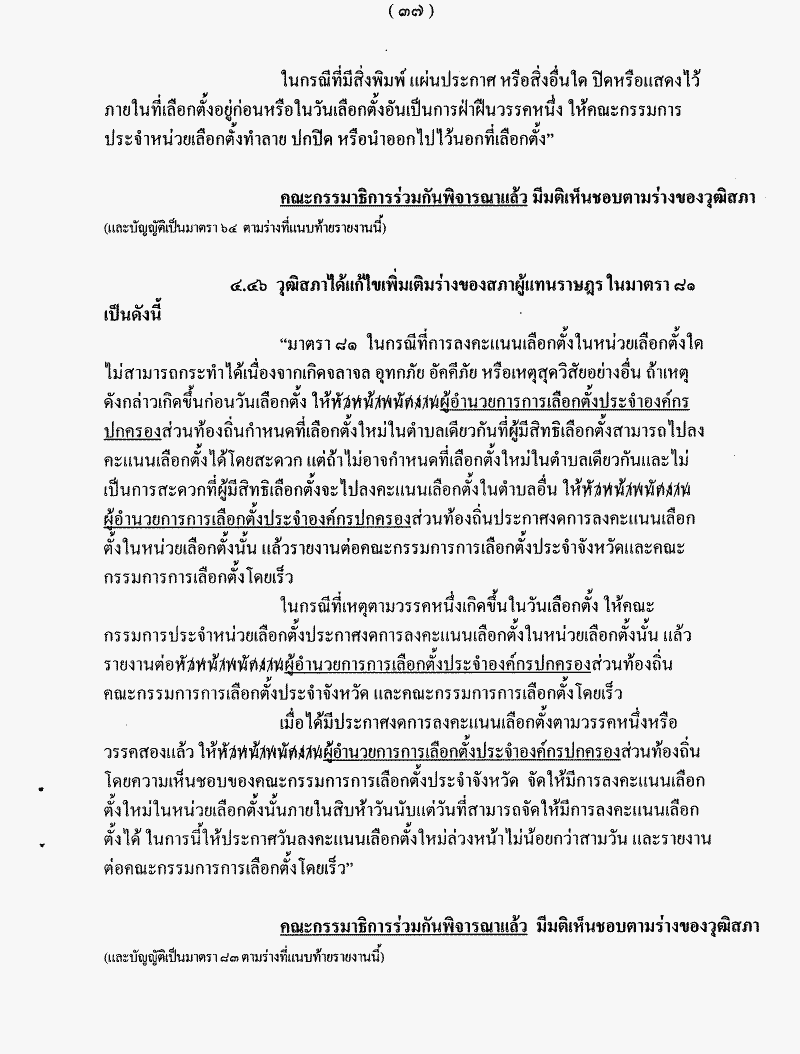 ( ๓๗ )
ในกรณีที่มีสิ่งพิมพ์ แผ่นประกาศ หรือสิ่งอื่นใด ปิดหรือแสดงไว้
ภายในที่เลือกตั้งอยู่ก่อนหรือในวันเลือกตั้งอันเป็นการฝ่าฝืนวรรคหนึ่ง ให้คณะกรรมการ
ประจำหน่วยเลือกตั้งทำลาย ปกปิด หรือนำออกไปไว้นอกที่เลือกตั้ง”
คณะกรรมาธิการร่วมกันพิจารณาแล้ว มีมติเห็นชอบตามร่างของวุฒิสภา
(และบัญญัติเป็นมาตรา ๖๔ ตามร่างที่แนบท้ายรายงานนี้)
๔.๔๖ วุฒิสภาได้แก้ไขเพิ่มเติมร่างของสภาผู้แทนราษฎร ในมาตรา ๘๑
เป็นดังนี้
“มาตรา ๘๑ ในกรณีที่การลงคะแนนเลือกตั้งในหน่วยเลือกตั้งใด
ไม่สามารถกระทำได้เนื่องจากเกิดจลาจล อุทกภัย อัคคีภัย หรือเหตุสุดวิสัยอย่างอื่น ถ้าเหตุ
ดังกล่าวเกิดขึ้นก่อนวันเลือกตั้ง ให้หัวหน้าพนักงานผู้อำนวยการการเลือกตั้งประจำองค์กร
ปกครองส่วนท้องถิ่นกำหนดที่เลือกตั้งใหม่ในตำบลเดียวกันที่ผู้มีสิทธิเลือกตั้งสามารถไปลง
คะแนนเลือกตั้งได้โดยสะดวก แต่ถ้าไม่อาจกำหนดที่เลือกตั้งใหม่ในตำบลเดียวกันและไม่
เป็นการสะดวกที่ผู้มีสิทธิเลือกตั้งจะไปลงคะแนนเลือกตั้งในตำบลอื่น ให้หัวหน้าพนักงาน
ผู้อำนวยการการเลือกตั้งประจำองค์กรปกครองส่วนท้องถิ่นประกาศงดการลงคะแนนเลือก
ตั้งในหน่วยเลือกตั้งนั้น แล้วรายงานต่อคณะกรรมการการเลือกตั้งประจำจังหวัดและคณะ
กรรมการการเลือกตั้งโดยเร็ว
ในกรณีที่เหตุตามวรรคหนึ่งเกิดขึ้นในวันเลือกตั้ง ให้คณะ
กรรมการประจำหน่วยเลือกตั้งประกาศงดการลงคะแนนเลือกตั้งในหน่วยเลือกตั้งนั้น แล้ว
รายงานต่อหัวหน้าพนักงานผู้อำนวยการการเลือกตั้งประจำองค์กรปกครองส่วนท้องถิ่น
คณะกรรมการการเลือกตั้งประจำจังหวัด และคณะกรรมการการเลือกตั้งโดยเร็ว
เมื่อได้มีประกาศงดการลงคะแนนเลือกตั้งตามวรรคหนึ่งหรือ
วรรคสองแล้ว ให้หัวหน้าพนักงานผู้อำนวยการการเลือกตั้งประจำองค์กรปกครองส่วนท้องถิ่น
โดยความเห็นชอบของคณะกรรมการการเลือกตั้งประจำจังหวัด จัดให้มีการลงคะแนนเลือก
ตั้งใหม่ในหน่วยเลือกตั้งนั้นภายในสิบห้าวันนับแต่วันที่สามารถจัดให้มีการลงคะแนนเลือก
ตั้งได้ ในการนี้ให้ประกาศวันลงคะแนนเลือกตั้งใหม่ล่วงหน้าไม่น้อยกว่าสามวัน และรายงาน
ต่อคณะกรรมการการเลือกตั้งโดยเร็ว”
คณะกรรมาธิการร่วมกันพิจารณาแล้ว มีมติเห็นชอบตามร่างของวุฒิสภา
(และบัญญัติเป็นมาตรา ๘๓ ตามร่างที่แนบท้ายรายงานนี้)